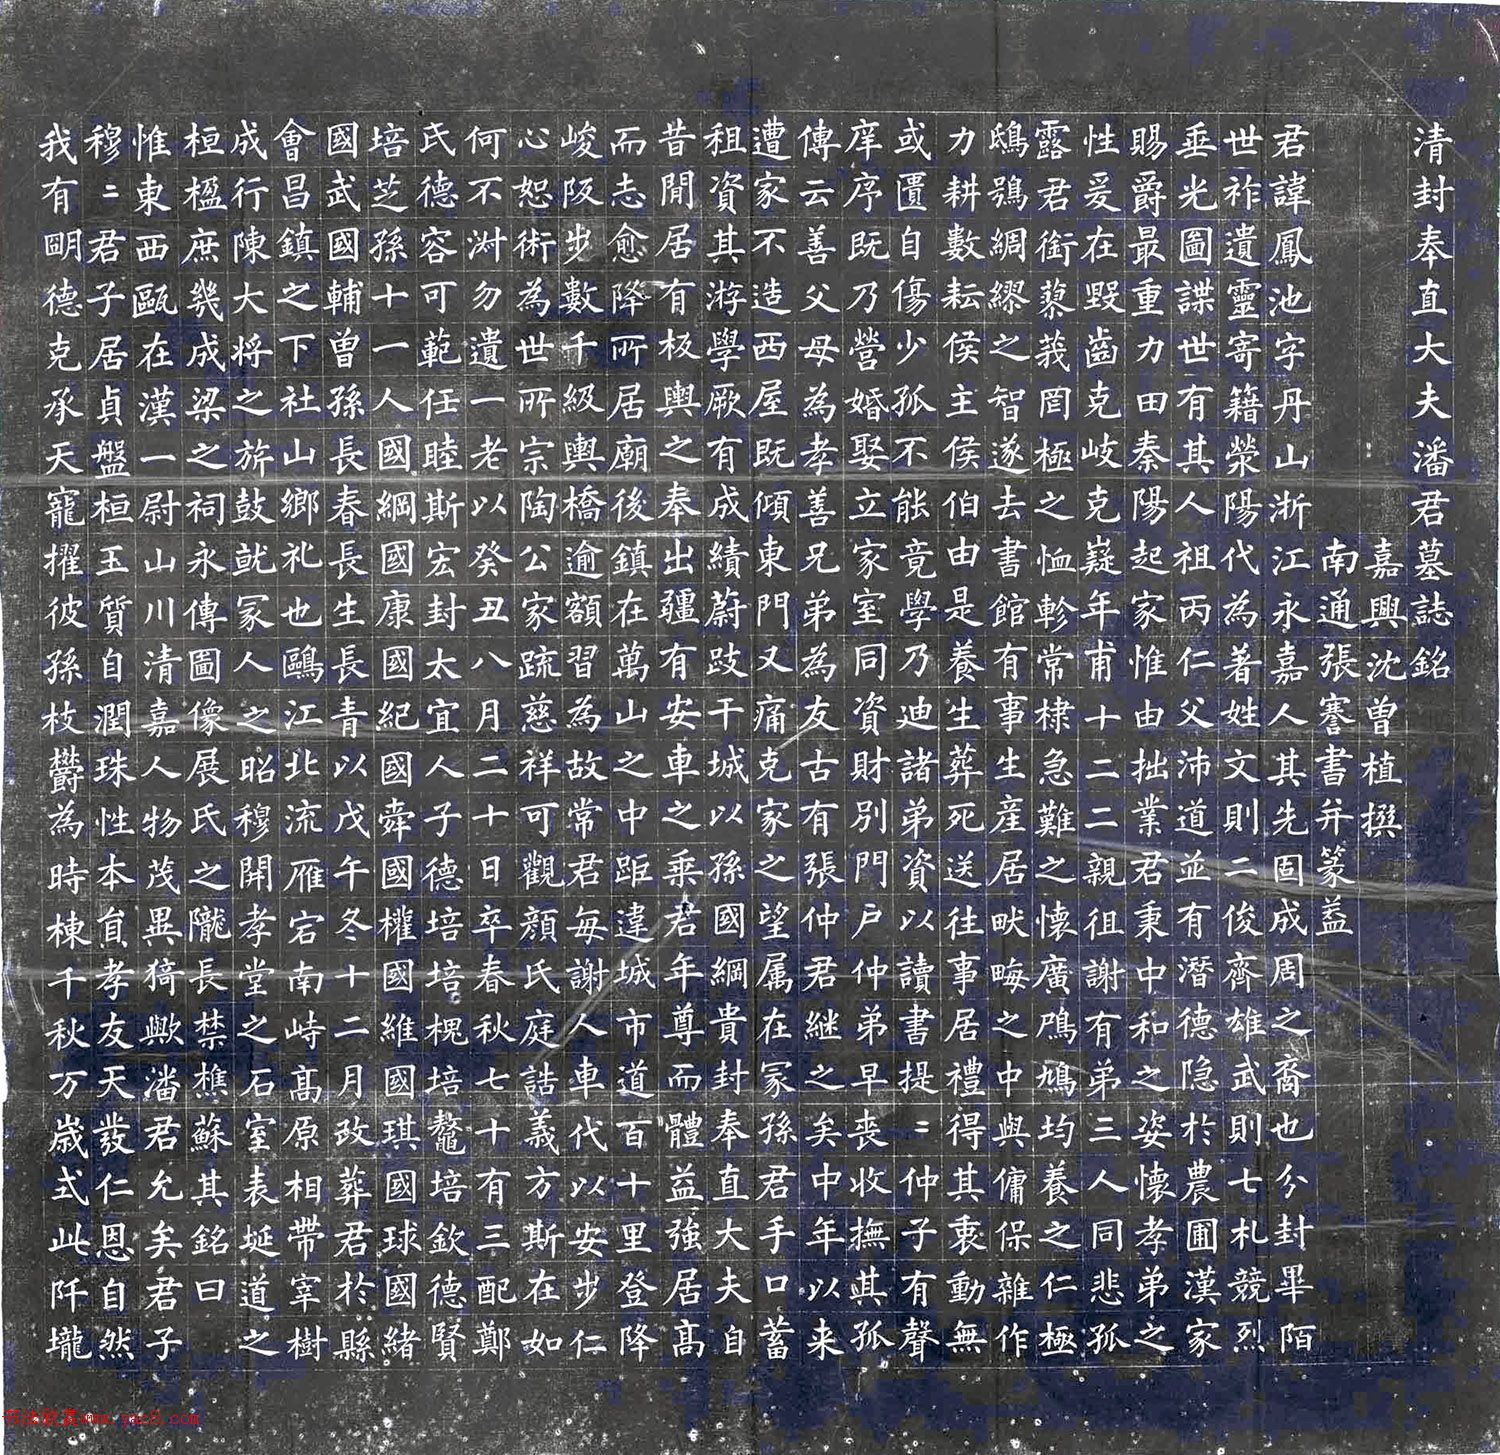 清封奉直大夫潘君墓誌銘
嘉興沈曾植撰
南通張謇書并篆蓋
君諱鳳池字丹山浙江永嘉人其先固成周之裔也分封畢陌
世祚遺靈寄籍滎陽代為著姓文則二俊齊雄武則七札競烈
垂光圖諜世有其人祖丙仁父沛道並有潛德隐於農圃漢家
賜爵最重力田秦陽起家惟由拙業君秉中和之姿懷孝弟之
性爰在毀齒克岐克嶷年甫十二二親徂謝有弟三人同悲孤
露君銜蓼莪罔極之恤軫常棣急難之懷廣鳲鳩均養之仁極
鴟鴞綢繆之智遂去書館有事生産居畎畮之中與傭保雜作
力耕數耘侯主侯伯由是養生葬死送往事居禮得其衷動無
或匱自傷少孤不能竟學乃迪諸弟資以讀書提〻仲子有聲
庠序既乃營婚娶立家室同資財別門戶仲弟早喪收撫其孤
傳云善父母為孝善兄弟為友古有張仲君継之矣中年以来
遭家不造西屋既傾東門又痛克家之望属在冢孫君手口蓄
租資其游學厥有成績蔚跂干城以孫國綱貴封奉直大夫自
昔閒居有板輿之奉出疆有安車之乘君年尊而體益強居高
而志愈降所居廟後鎮在萬山之中距違城市道百十里登降
峻阪步數千級輿橋逾額習為故常君每謝人車代以安步仁
心恕術為世所宗陶公家疏慈祥可觀顔氏庭誥義方斯在如
何不淑勿遺一老以癸丑八月二十日卒春秋七十有三配鄭
氏德容可範任睦斯宏封太宜人子德培培槐培鼇培欽德賢
培芝孫十一人國綱國康國紀國舜國權國維國琪國球國緒
國武國輔曾孫長春長生長青以戊午冬十二月改葬君於縣
會昌鎮之下社山鄉礼也鷗江北流雁宕南峙高原相帶宰樹
成行陳大將之旂鼓就冢人之昭穆開孝堂之石室表埏道之
桓楹庶幾成梁之祠永傳圖像展氏之隴長禁樵蘇其銘曰
惟東西甌在漢一尉山川清嘉人物茂異猗歟潘君允矣君子
穆〻君子居貞盤桓玉質自潤珠性本貟孝友天發仁恩自然
我有明德克承天寵擢彼孫枝欝為時棟千秋万歲式此阡壠
书法欣赏www.yac8.com